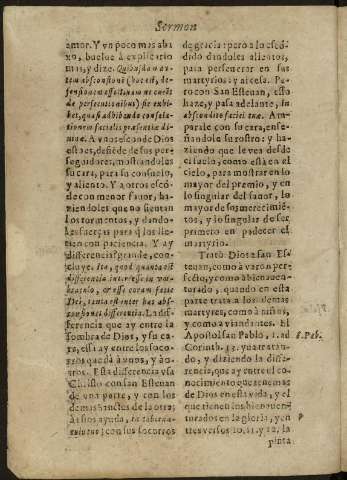 Sermon
amor. Y vn poco mas aba
xo, buelue à explicarlo
mas, y dize. Quibusdam au-
tem absconsioni (hoc est, de-
fensioni
de persecutionibus) sic exhi-
bet, quasi adhibenda consola-
tionem faciali præsentiæ di-
uinæ. A vnos esconde Dios
esto es, defiende de sus per-
seguidores, mostrandoles
su cara, para su consuelo,
y aliento. Y à otros escó-
de con menor fauor, ha-
ziendoles que no sientan
los tormentos, y dando-
les fuerças para q̃ los lle-
uen con paciencia. Y ay
differencia grande, con-
cluye. Ita, quod quanta est
differentia inter esse in
, & esse coram facie
Dei, tanta est inter has abs-
consiones differentia. La di-
ferencia que ay entre la
sombra de Dios, y su ca-
ra, essa ay entre los soco-
rros que dà à vnos, y à o-
tros. Esta diferencia vsa
Christo con san Esteuan
de vna parte, y con los
demas sanctos de la otra:
A estos ayuda, in taberna-
; con sus socorros
de gracia: pero a lo escó-
dido dandoles alientos,
para perseuerar en sus
martyrios: y alcesa. Pe-
ro con San Esteuan, esso
haze, y passa adelante, in
abscondito faciei tuæ. Am-
parale con su cara, ense-
ñandole su rostro: y ha-
ziendo que le vea desde
el suelo, como està en el
cielo, para mostrar en lo
mayor del premio, y en
lo singular del fauor, lo
mayor de sus merecimie-
tos, y lo singular de ser
primero en padecer el
martyrio.
Tratò Dios a san Es-
teuan, como à varon per-
fecto, y como à bienauen-
turado, quando en esta
parte trata à los demas
martyres, como à niños,
y como a viandantes. El
Apostol san Pablo, 1. ad
Corinth. 13. va tratan-
do, y diziendo la dife-
rencia, que ay entre el co-
nocimiento que tenemos
de Dios en esta vida, y el
que tienen los bienauen-
turados en la gloria, y en
tres versos 10. 11. y 12. la
pinta